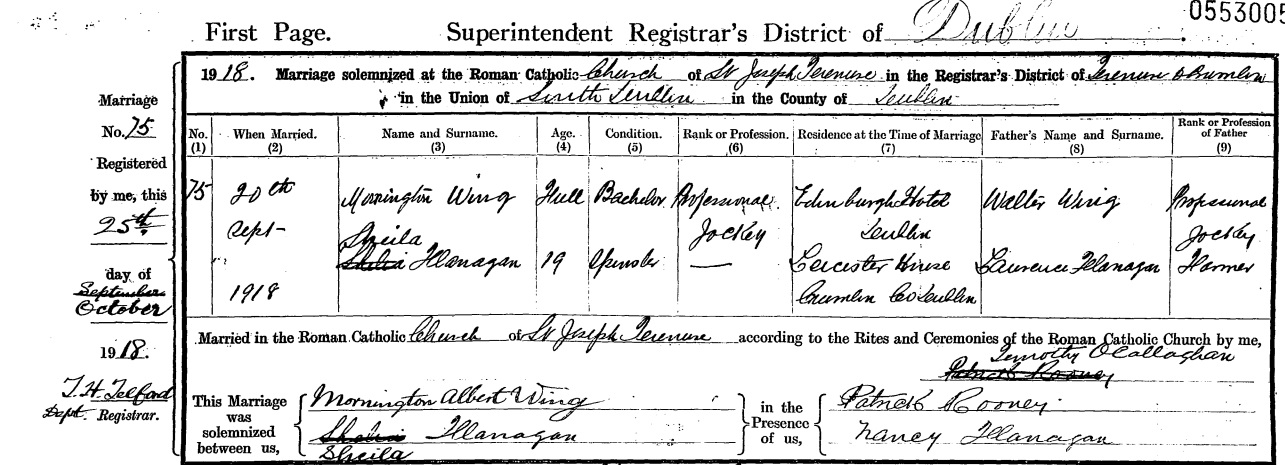 0553005
First Page. Superintendent Registrar's District of Dublin
1918. Marriage solemnized at the Roman Catholic Church of St Joseph Terenure in the Registrar's District of Terenure & Crumlin
in the Union of South Dublin in the County of Dublin
Marriage
No. 75
Registered
by me, this
25th
day of
September
October
1918.
T. H. Telford
Dept. Registrar.
No. (1) When Married. (2) Name and Surname. (3) Age. (4) Condition. (5) Rank or Profession. (6) Residence at the Time of Marriage (7) Father's Name and Surname. (8) Rank or Profession of Father (9)
75 20th Mornington Wing Full Bachelor Professional Edinburgh Hotel Walter Wing Professional
Sept Sheila Jockey Dublin Jockey
Shelia Flanagan 19 Spinster — Leicester House Laurence Flanagan Farmer
1918 Crumlin Co Dublin
Married in the Roman Catholic Church of St Joseph Terenure according to the Rites and Ceremonies of the Roman Catholic Church by me,
Timothy O'Callaghan
Patrick Rooney
This Marriage was solemnized between us,
Mornington Albert Wing
Shelia Flanagan
Sheila
in the Presence of us,
Patrick Rooney
Nancy Flanagan